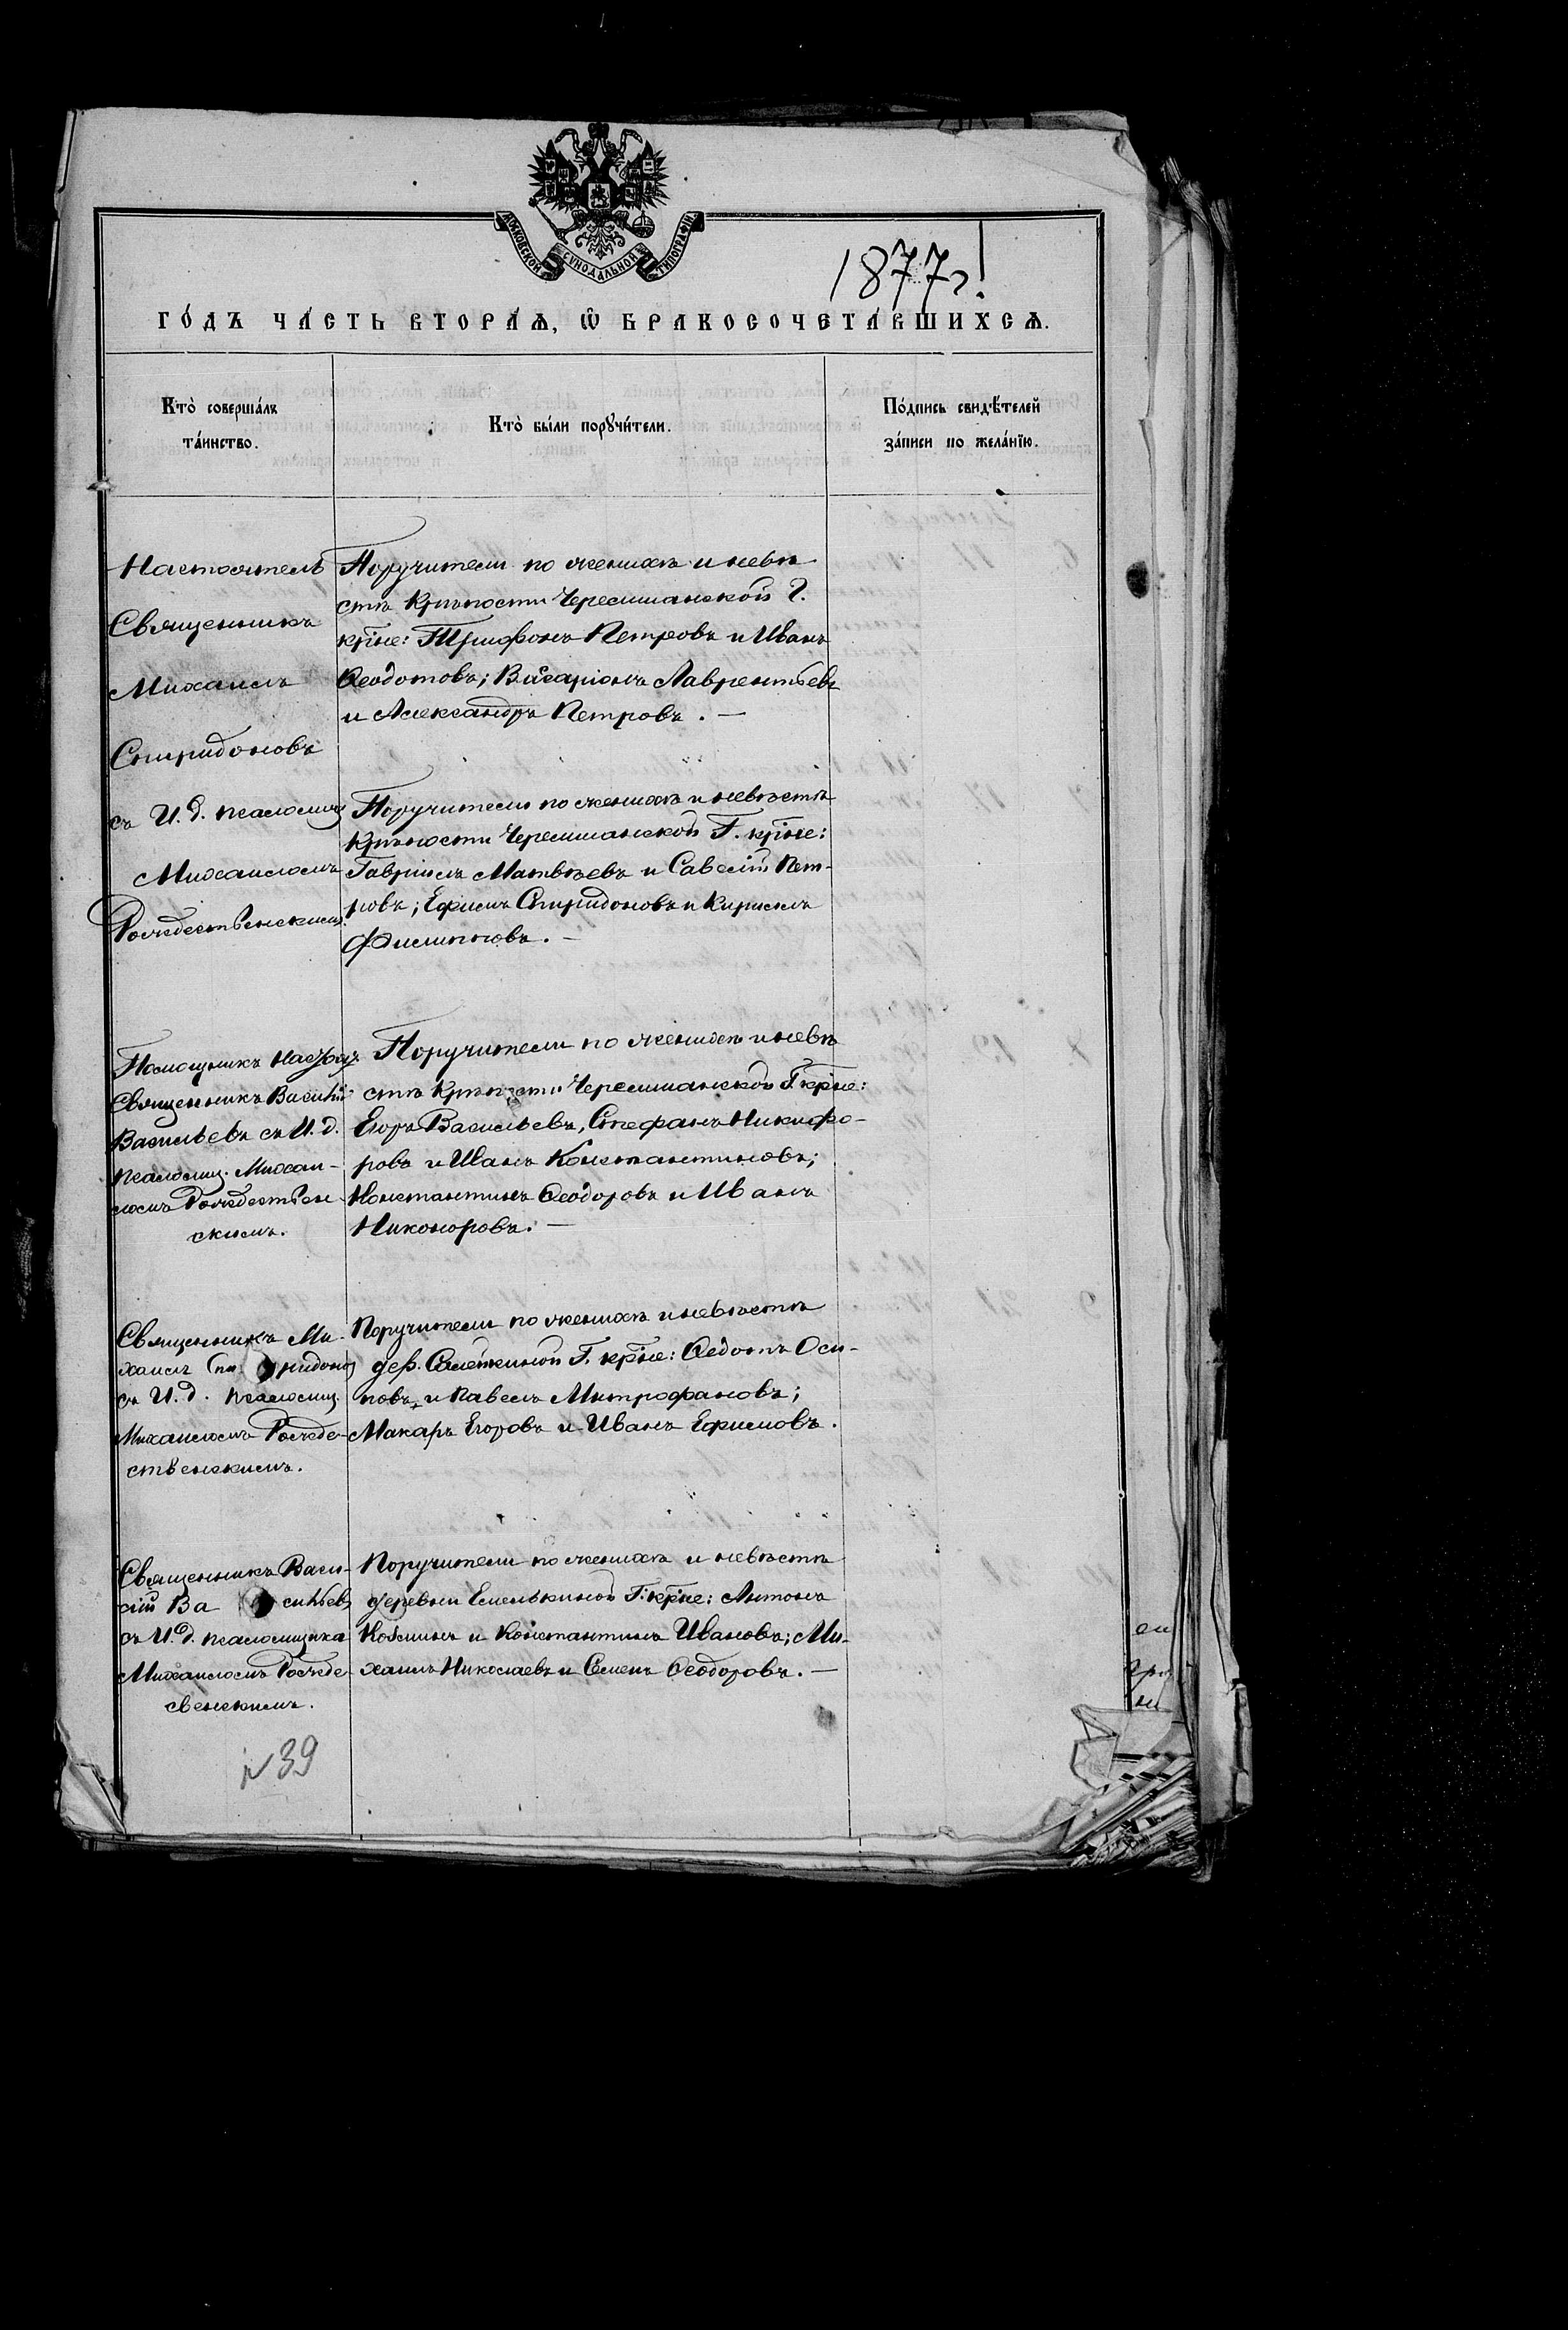 МОСКОВСКОЙ СѴНОДАЛЬНОЙ ТИПОГРАФІИ
1877 г!
ГО́ДЪ ЧА́СТЬ ВТОРА́Ѧ, Ѡ҆ БРАКОСОЧЕТА́ВШИХСѦ.
Кто̀ соверша́лъ
та́инство.
Кто̀ бы́ли порꙋчи́тели.
По́дпись свидѣ́телей
за́писи по жела́нїю.
Настоятель
Священникъ
Михаилъ
Спиридоновъ
съ И. д. псаломщ
Михаиломъ
Рождественскимъ
Поручители по женихѣ и невѣ
стѣ Крѣпости Черемшанской Г.
крѣне: Трифонъ Петровъ и Иванъ
Ѳеодотовъ; Висаріонъ Лаврентьевъ
и Александръ Петровъ. —
Поручители по женихѣ и невѣстѣ
Крѣпости Черемшанской Г. крѣне:
Гавріилъ Матвѣевъ и Савелій Пет-
ровъ; Ефимъ Спиридоновъ и Кирилъ
Филипповъ. —
Помощникъ Настоя.
Священникъ Василій
Васильевъ съ И. д.
псаломщ. Михаи-
ломъ Рождествен
скимъ.
Поручители по женихѣ и невѣ
стѣ Крѣпости Черемшанской Г. крѣне:
Егоръ Васильевъ, Стефанъ Никифо-
ровъ и Иванъ Константиновъ;
Константинъ Ѳеодоровъ и Иванъ
Никоноровъ. —
Священникъ Ми-
хаилъ Спиридоно
съ И. д. псаломщ.
Михаиломъ Рожде-
ственскимъ.
Поручители по женихѣ и невѣстѣ
дер. Г. крѣне: Ѳедотъ Оси-
повъ и Павелъ Митрофановъ;
Макаръ Егоровъ и Иванъ Ефимовъ.
Священникъ Васи-
лій Васильевъ
съ И. д. псаломщика
Михаиломъ Рожде-
свенскимъ.
Поручители по женихѣ и невѣстѣ
деревни Емелькиной Г. крѣне: Антонъ
Козминъ и Константинъ Ивановъ; Ми-
хаилъ Николаевъ и Семенъ Ѳеодоровъ. —
№ 39